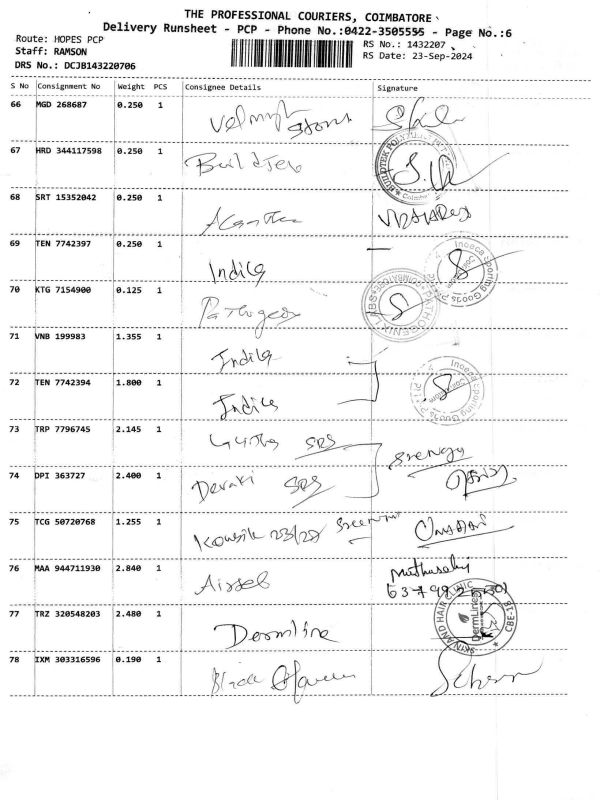 THE PROFESSIONAL COURIERS, COIMBATORE
Delivery Runsheet - PCP - Phone No.:0422-3505555 - Page No.:6
Route: HOPES PCP
RS No.: 1432207
Staff: RAMSON
RS Date: 23-Sep-2024
DRS No.: DCJB143220706
S No Consignment No Weight PCS Consignee Details Signature
66 MGD 268687 0.250 1
67 HRD 344117598 0.250 1 Buildtek
68 SRT 15352042 0.250 1
69 TEN 7742397 0.250 1 Indica
70 KTG 7154900 0.125 1 Pathogenix
PATHOGENIX LABS
71 VNB 199983 1.355 1 Indica
72 TEN 7742394 1.800 1 Indica
73 TRP 7796745 2.145 1 SRS
74 DPI 363727 2.400 1 Devaki SRS
75 TCG 50720768 1.255 1
76 MAA 944711930 2.840 1 Airtel
77 TRZ 320548203 2.480 1 Dermline
SKIN AND HAIR CLINIC
CBE-18
78 IXM 303316596 0.190 1